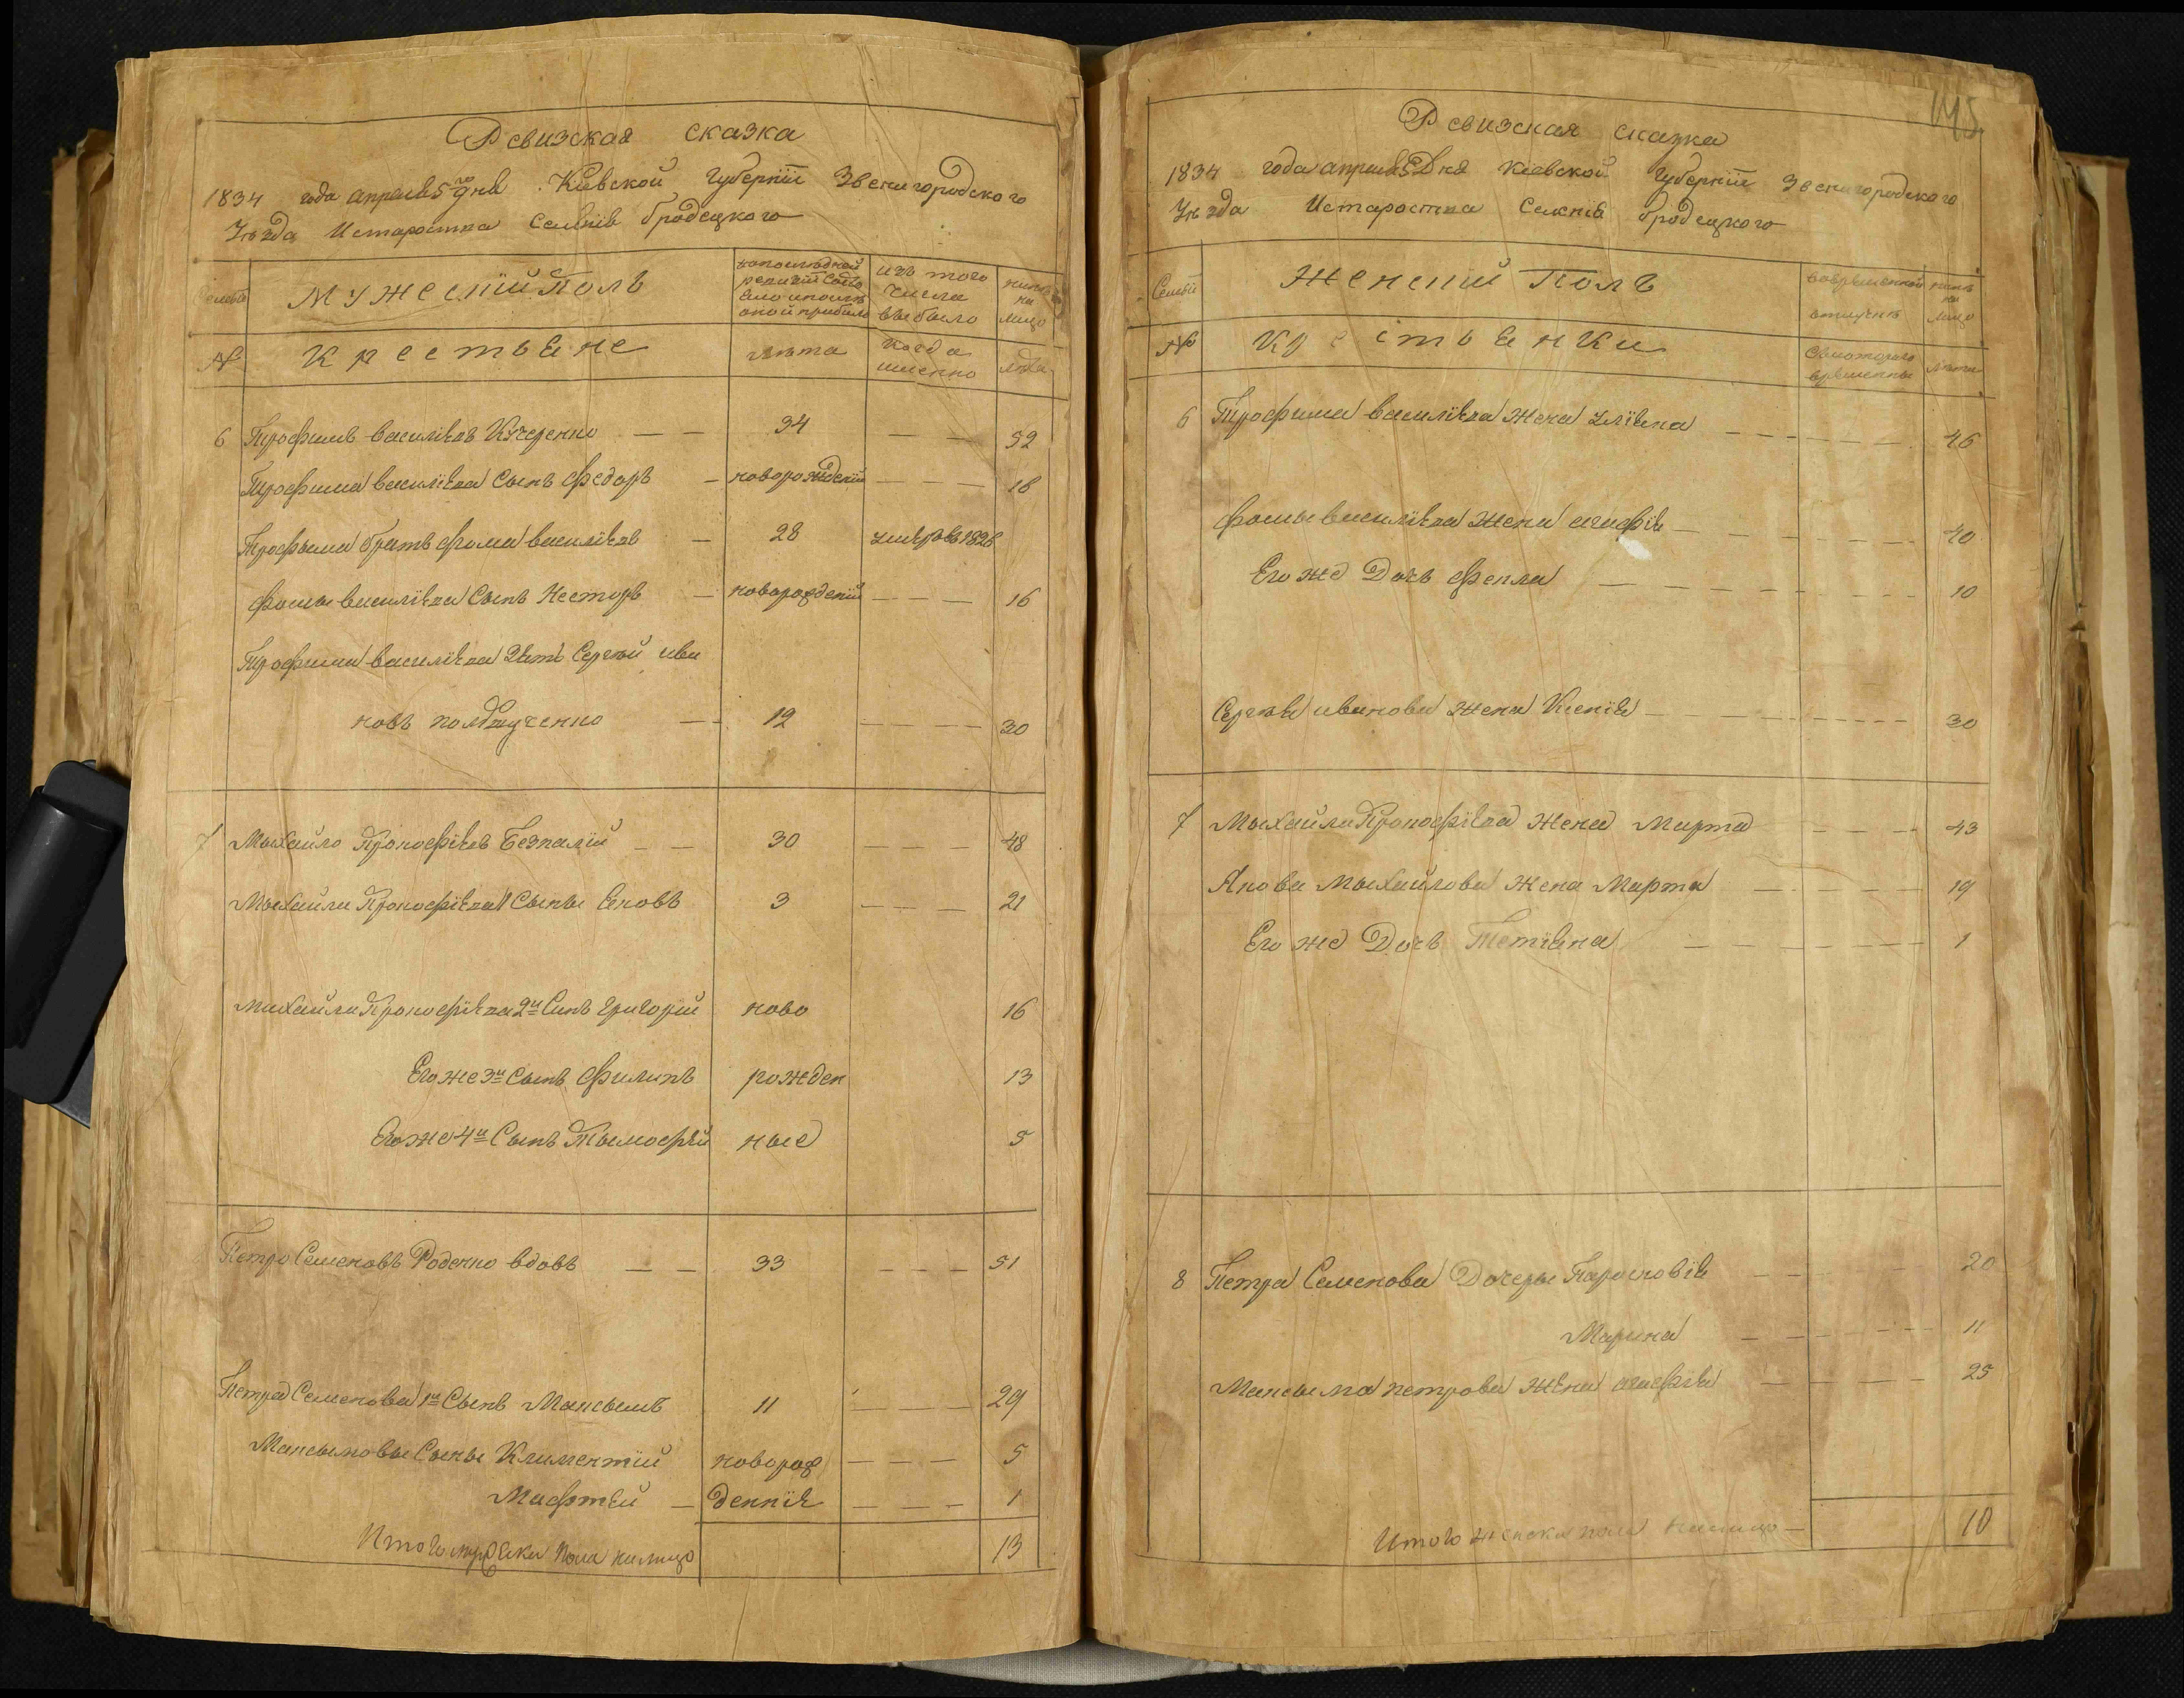 Ревизская сказка
1834 года апреля 5го дня Киевской Губернии Звенигородского
Уезда Истаростка Селенiя Бродецкого
Семьи
Мужеский Полъ
из того числа выбыло
ныне на лицо
№
Крестьяне
лета
Когда именно
лета
6 Трофимъ василiевъ Кучеренко — — 34 — — 52
Трофима василiева Сынъ Федоръ — новорожденiй — — — 18
Трофыма братъ фома василiевъ — 28 умеръ 1826
фомы василiева Сынъ Несторъ — новорожденiй — — — 16
Трофима василiева Зять Сергей ива
новъ — — 12 — — — 30
7 Мыхайло Прокофiевъ Безпалiй — — 30 — — — 48
Мыхайла Прокофiева 1 Сыны Яковъ 3 — — — 21
Михайла Прокофiева 2й Синъ Григорiй ново 16
Его же 3й Сынъ Филипъ рожден 13
Его же 4й Сынъ Тымофей ные 5
Петро Семеновъ Роденко вдовъ — — 33 — — — 51
Петра Семенова 1й Сынъ Максымъ 11 — — — 29
Максымовы Сыны Климентiй новорож — — — 5
Мафтей — деннiе — — — 1
Итого мужеска пола налицо 13
145
Ревизская сказка
1834 года апреля 5 Дня Киевской Губернии Звенигородского
Уезда Истаростка Селенiя бродецкого
Семьи
Женский Полъ
вовременной отлучке
ныне на лицо
№
Крестьянки
Скоторого времены
лета
6 Трофима василiева жена Улiяна — — — — — — 46
фомы василiева жена агафiя — — — — — — 40
Его же Дочь Фекла — — — — — — 10
Сергея иванова жена Ксенiя — — — — — — 30
7 Мыхайла Прокофiева жена Марта — — — 43
Якова Мыхайлова жена Марта — — — — — 19
Его же Дочь Тетiяна — — — — — 1
8 Петра Семенова Дочеры Парасковiя — — — — 20
Марина — — — — — 11
Максыма петрова жена агафiя — — — — 25
Итого женска пола налицо — 10